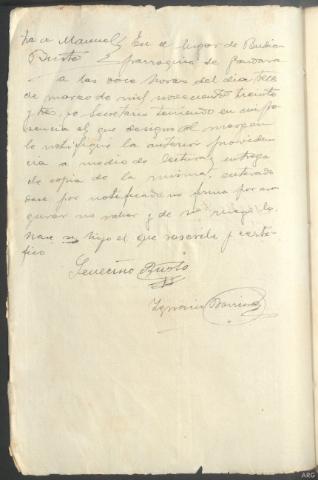 a Manuel En el lugar de
Busto parroquia de
a las doce horas del dia
de marzo de mil novecientos treinta
y tres, yo Secretario teniendo en mi pre
sencia al que designa al margen
le notifique la anterior providen
cia a medio de lectura y entrega
de copia de la misma, enterado
dase por notificado no firma por ase
gurar no saber y de su ruego lo
hace su hijo el que suscribe y certi
fico
Severino Busto
Ignacio
ARG